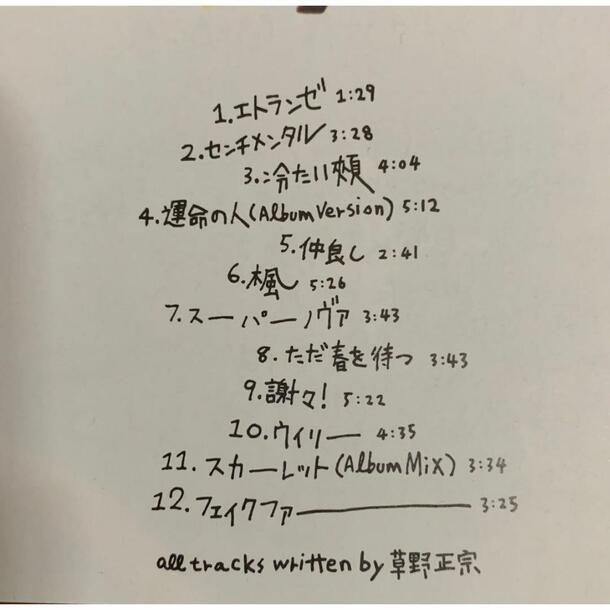 1.エトランゼ 1:29
2.センチメンタル 3:28
3.冷たい頬 4:04
4.運命の人(Album Version) 5:12
5.仲良し 2:41
6.楓 5:26
7.スーパーノヴァ 3:43
8.ただ春を待つ 3:43
9.謝々! 5:22
10.ウィリー 4:35
11.スカーレット(Album Mix) 3:34
12.フェイクファー 3:25
all tracks written by 草野正宗